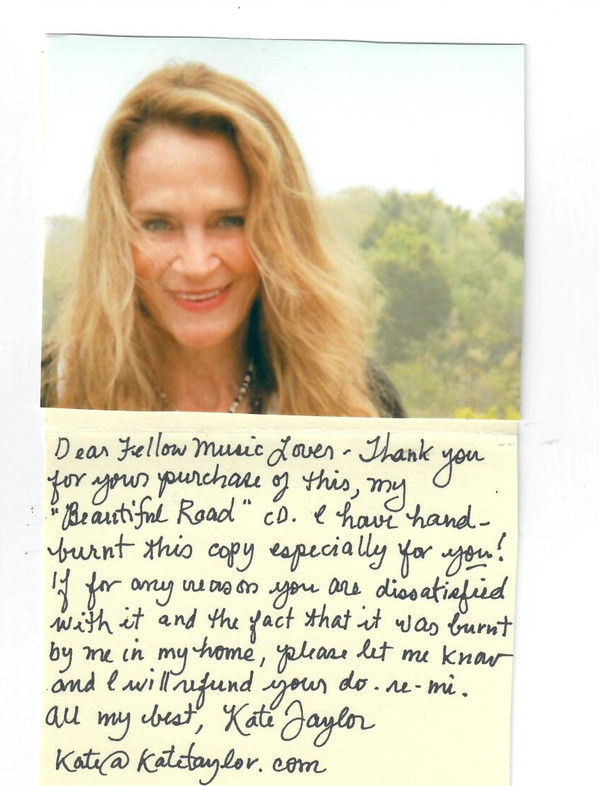 Dear Fellow Music Lover - Thank you
for your purchase of this, my
"Beautiful Road" CD. I have hand-
burnt this copy especially for you!
If for any reason you are dissatisfied
with it and the fact that it was burnt
by me in my home, please let me know
and I will refund your do-re-mi.
All my best, Kate Taylor
Kate@Katetaylor.com